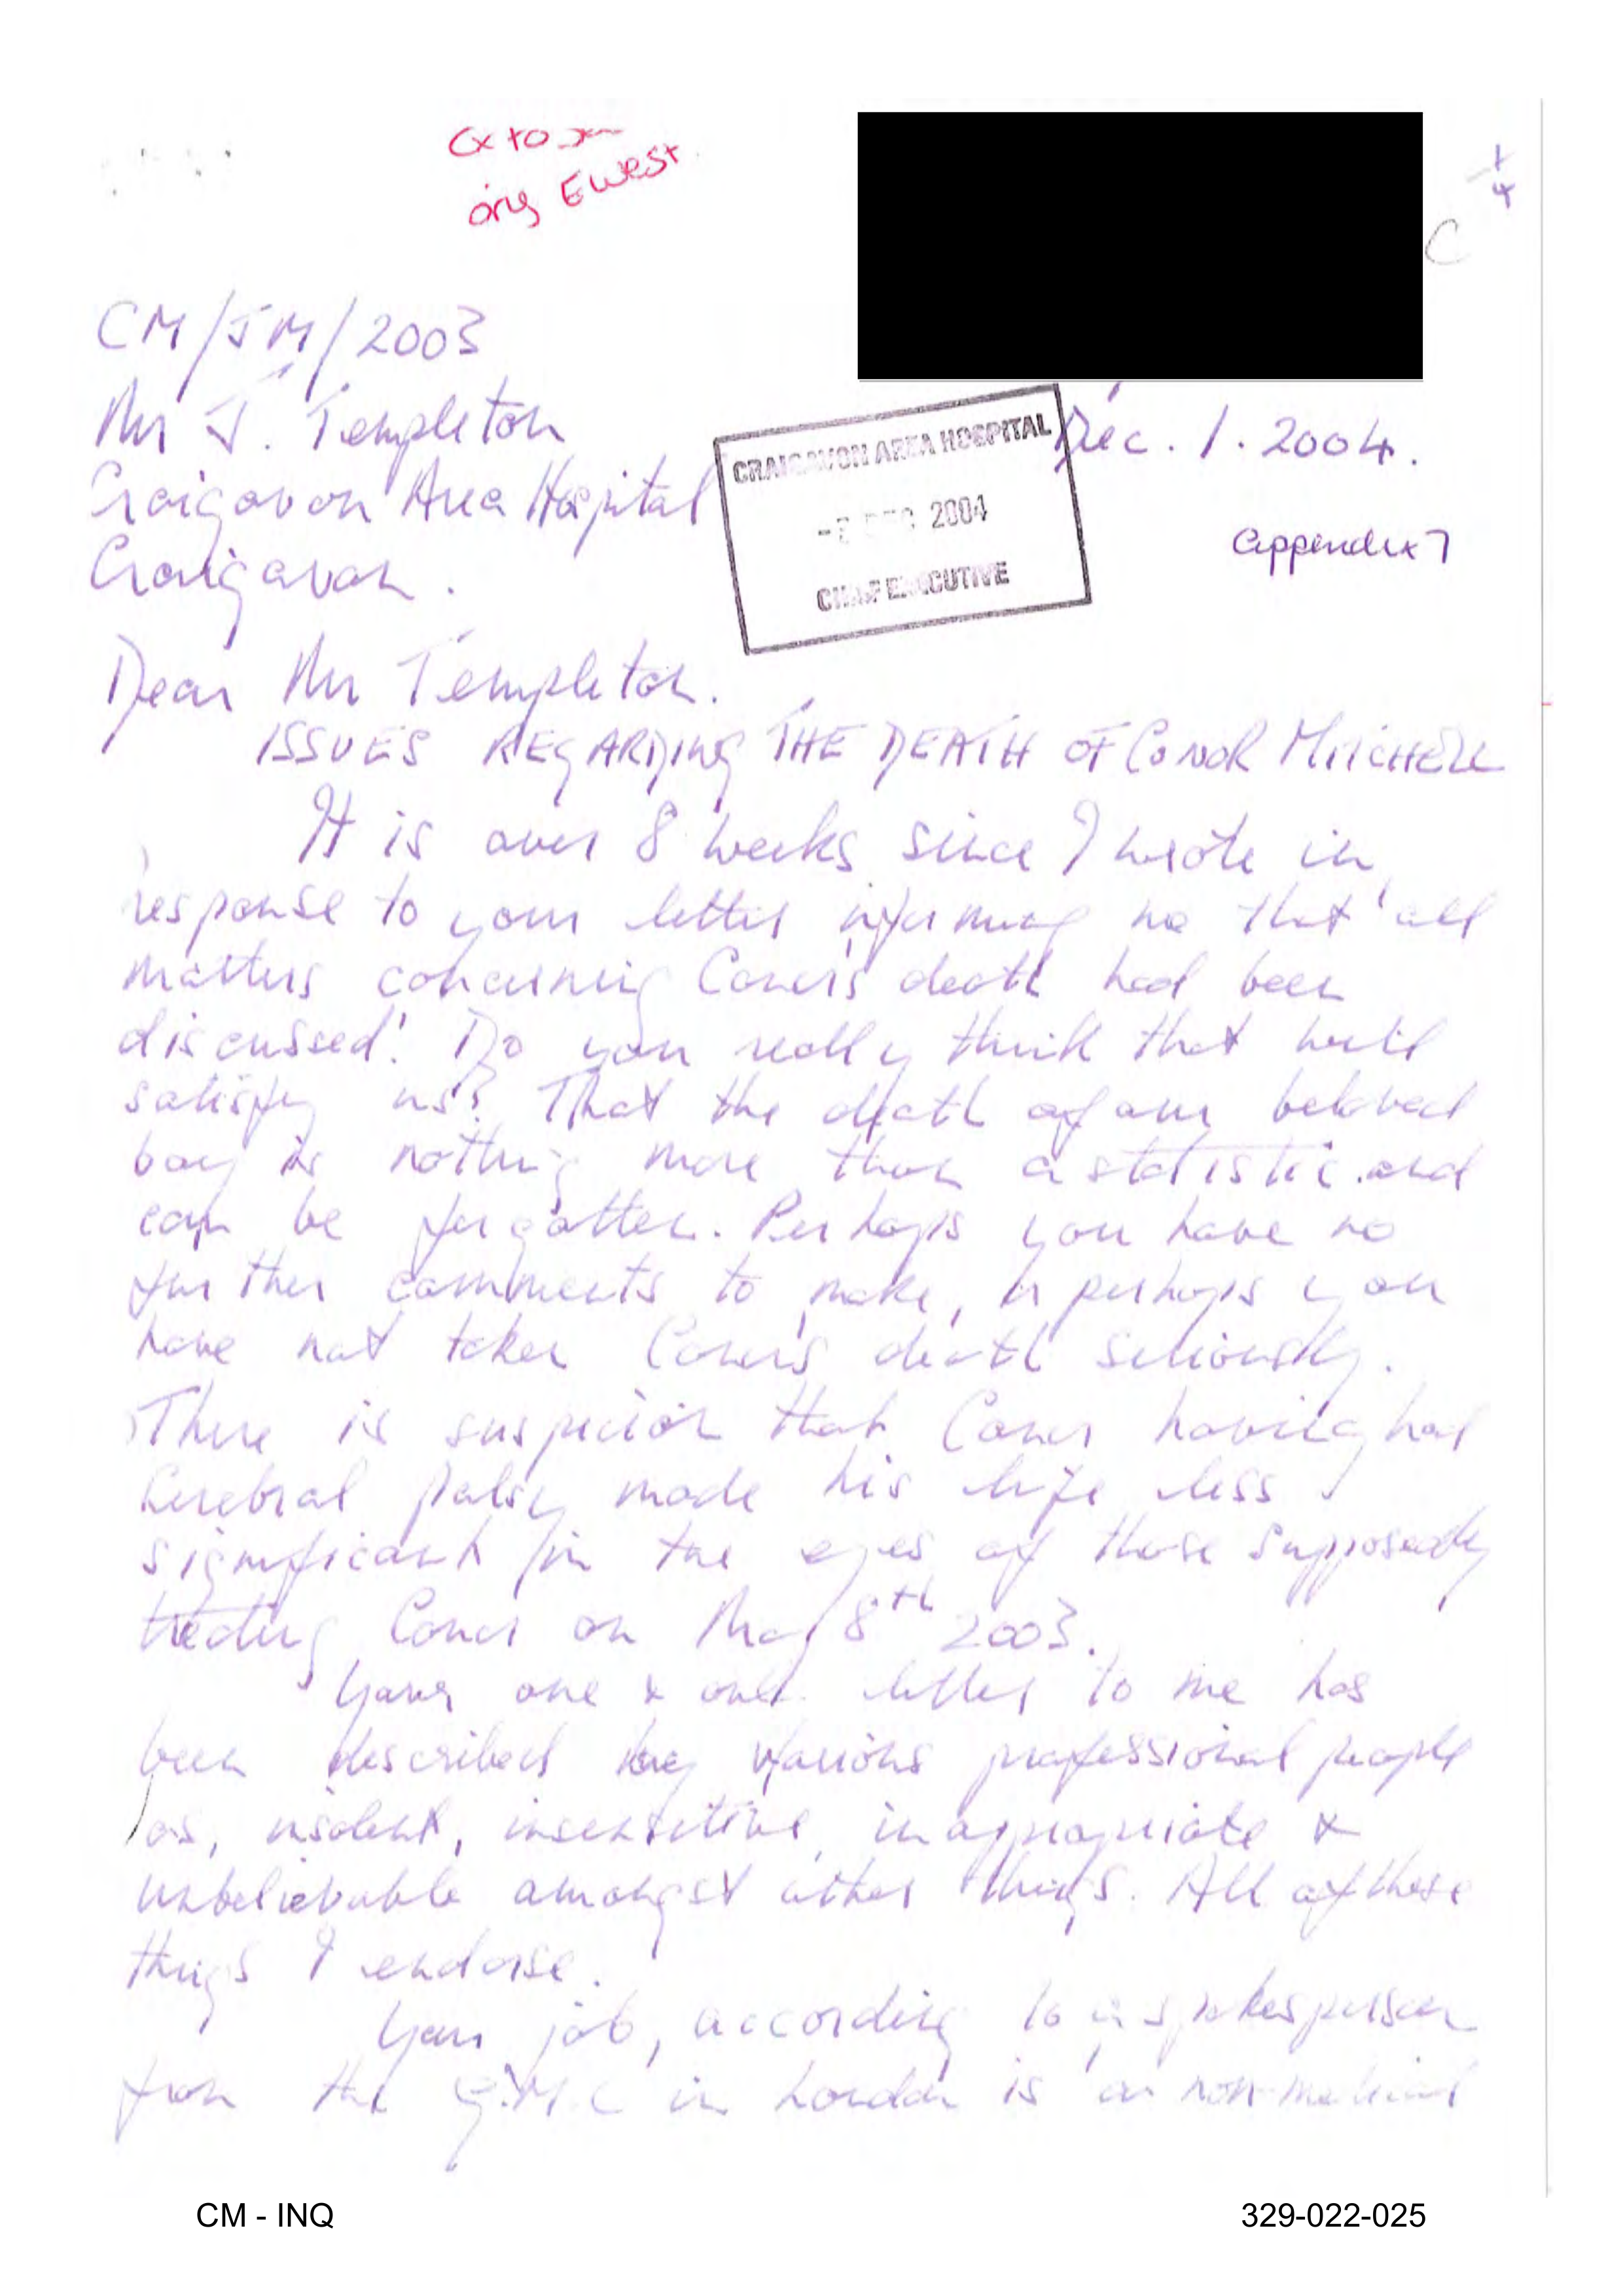 orig E West
1/4
C
CM/JM/2003
Mr J. Templeton
Craigavon Area Hospital
Craigavon.
CRAIGAVON AREA HOSPITAL
DEC 2004
CHIEF EXECUTIVE
Dec. 1. 2004.
Appendix 7
Dear Mr Templeton.
ISSUES REGARDING THE DEATH OF CONOR MITCHELL
It is over 8 weeks since I wrote in
response to your letter informing me that 'all
matters concerning Conor's death had been
discussed'. Do you really think that will
satisfy us? That the death of our beloved
boy is nothing more than a statistic and
can be forgotten. Perhaps you have no
further comments to make, or perhaps you
have not taken Conor's death seriously.
There is suspicion that Conor having had
Cerebral palsy made his life less
significant in the eyes of those supposedly
treating Conor on May 8th 2003.
Your one & only letter to me has
been described by various professional people
as, insolent, insensitive, inappropriate &
unbelievable amongst other things. All of these
things I endorse.
Your job, according to a spokesperson
from the G.M.C in London is 'a non-medical
CM - INQ
329-022-025